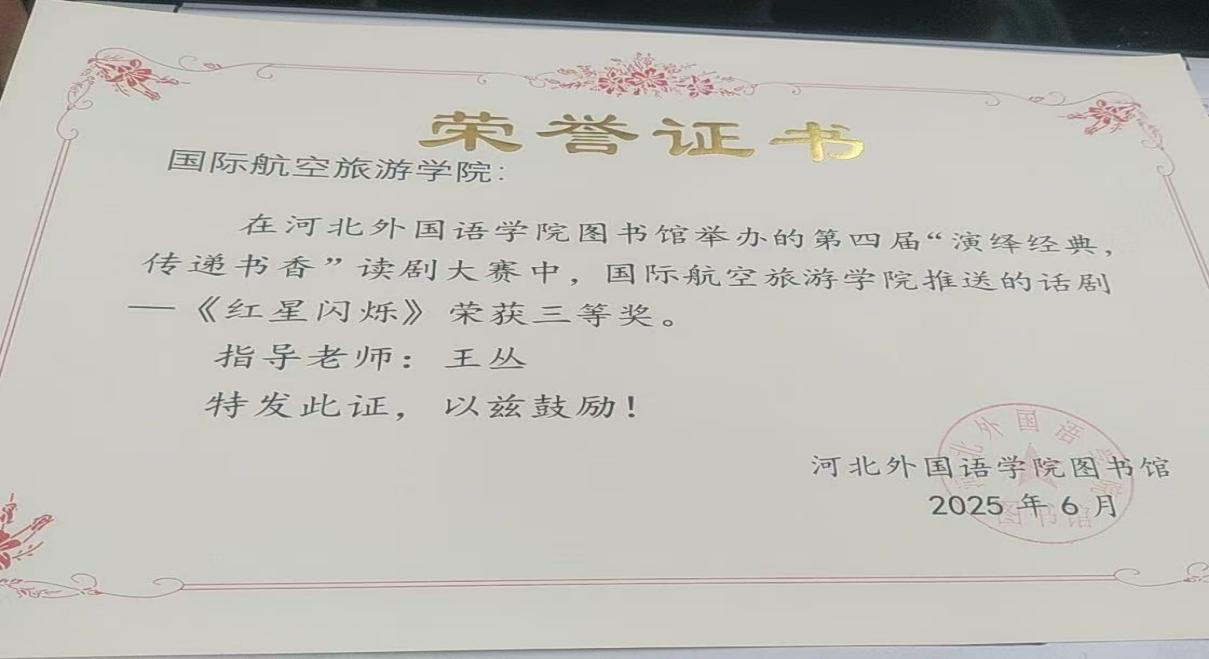 荣誉证书
国际航空旅游学院：
在河北外国语学院图书馆举办的第四届“演绎经典，
传递书香”读剧大赛中，国际航空旅游学院推送的话剧
—《红星闪烁》荣获三等奖。
指导老师：王丛
特发此证，以兹鼓励！
河北外国语学院图书馆
2025 年 6 月
河北外国语学院
图书馆